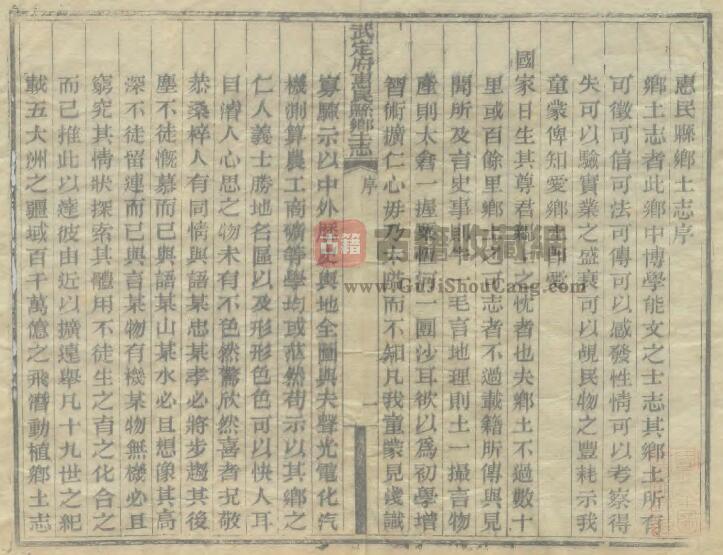 惠民縣鄉土志序
鄉土志者此鄉中博學能文之士志其鄉土所有
可徵可信可法可傳可以感發性情可以考察得
失可以驗實業之盛衰可以覘民物之豐耗示我
童蒙俾知愛鄉土因愛
國家日生其尊君親上之忱者也夫鄉土不過數十
里或百餘里鄉土可志者不過載籍所傳與見
聞所及言史事九牛一毛言地理則土一撮言物
產則太倉一握粟恒河一團沙耳欲以為初學增
智術擴仁心毋乃太略而不知凡我童蒙見淺識
武定府惠民縣鄉土志
序
一
寡驟示以中外歷史輿地全圖與夫聲光電化汽
機測算農工商礦等學均或茫然苟示以其鄉之
仁人義士勝地名區以及形形色色可以快人耳
目濬人心思之物未有不色然驚欣然喜者況敬
恭桑梓人有同情與語某忠某孝必將步趨其後
塵不徒慨慕而已與語某山某水必且想像其高
深不徒留連而已與言某物有機某物無機必且
窮究其情狀探索其體用不徒生之育之化合之
而已推此以達彼由近以擴遠舉凡十九世之紀
載五大洲之疆域百千萬億之飛潛動植鄉土志
古籍
古籍收藏網
www.GuJiShouCang.com